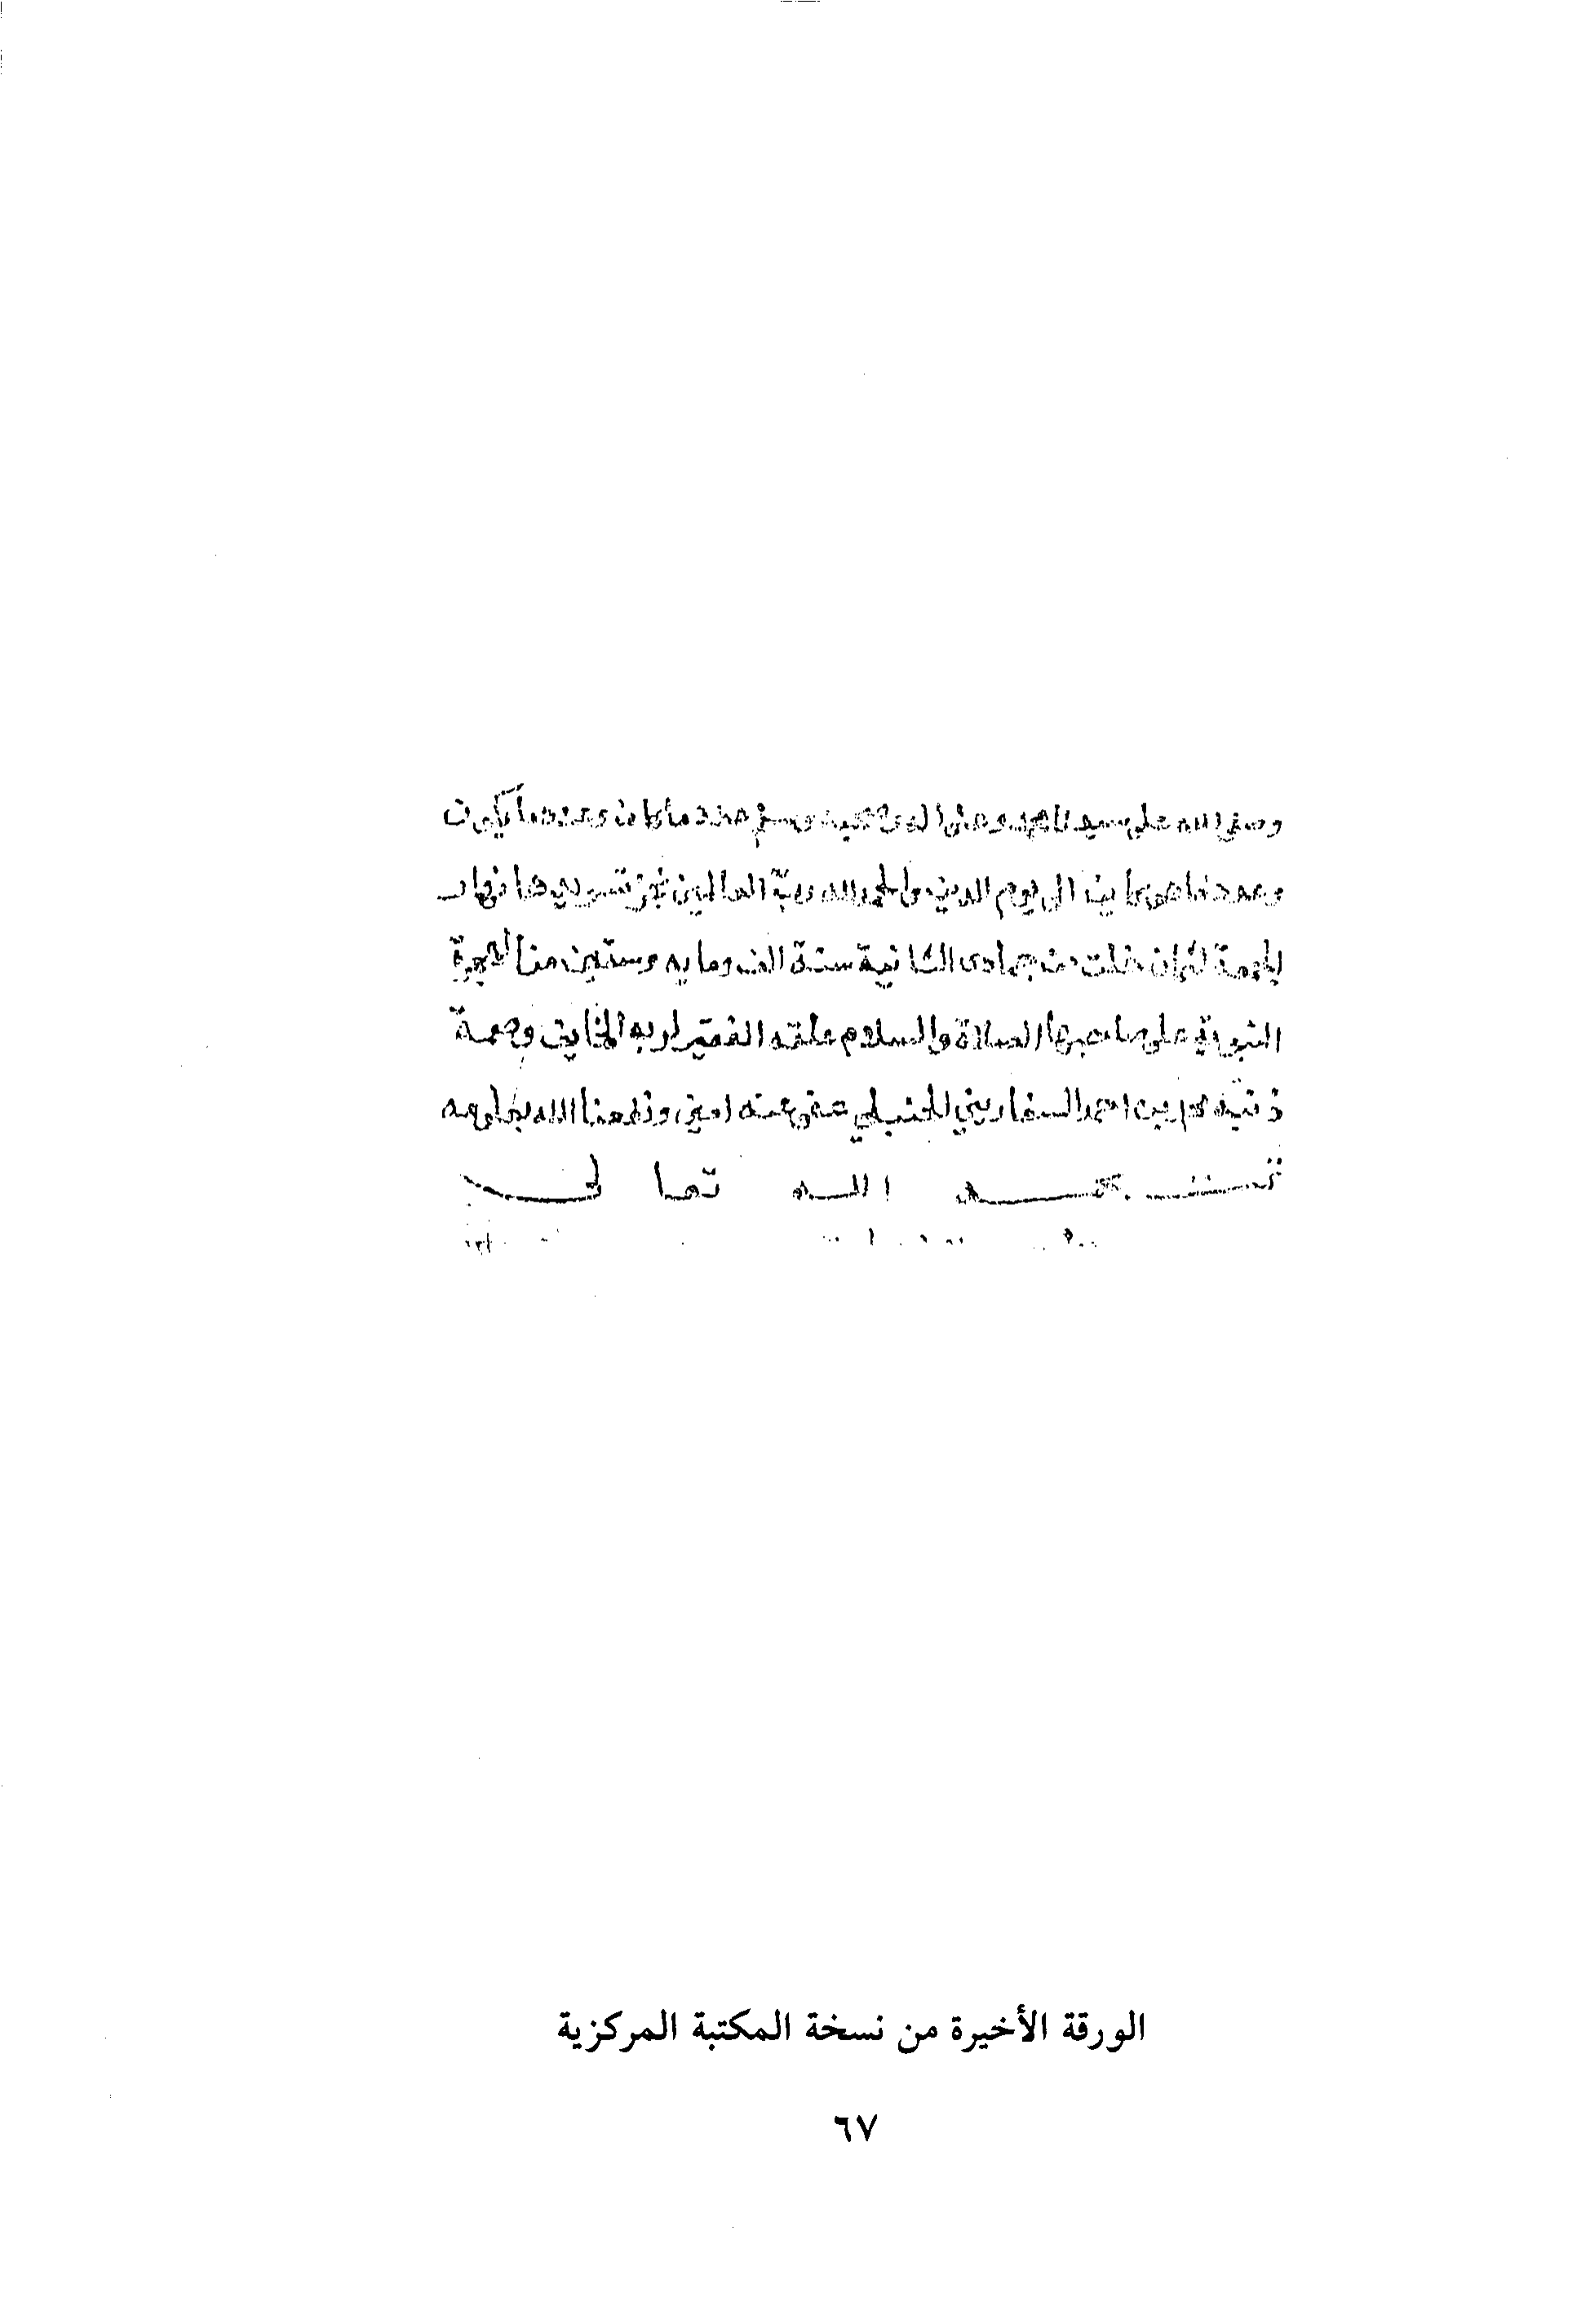 وصلى الله على سيدنا محمد وعلى اله وصحبه وسلم عدد ماكان وعدد ما يكون
وعدد ما هو كاين الى يوم الدين والحمد لله رب العالمين نجز تسويدها نهار
الجمعة لثمان خلت من جمادى الثانية سنة الف ومايه وستين من الهجرة
النبوية على صاحبها الصلاة والسلام علقه الفقير لربه الخايف وصمة
ذنبه محمد بن احمد السفاريني الحنبلي عفى عنه امين ونفعنا الله بعلومه
تمت بحمد الله تعالى
الورقة الأخيرة من نسخة المكتبة المركزية
٦٧